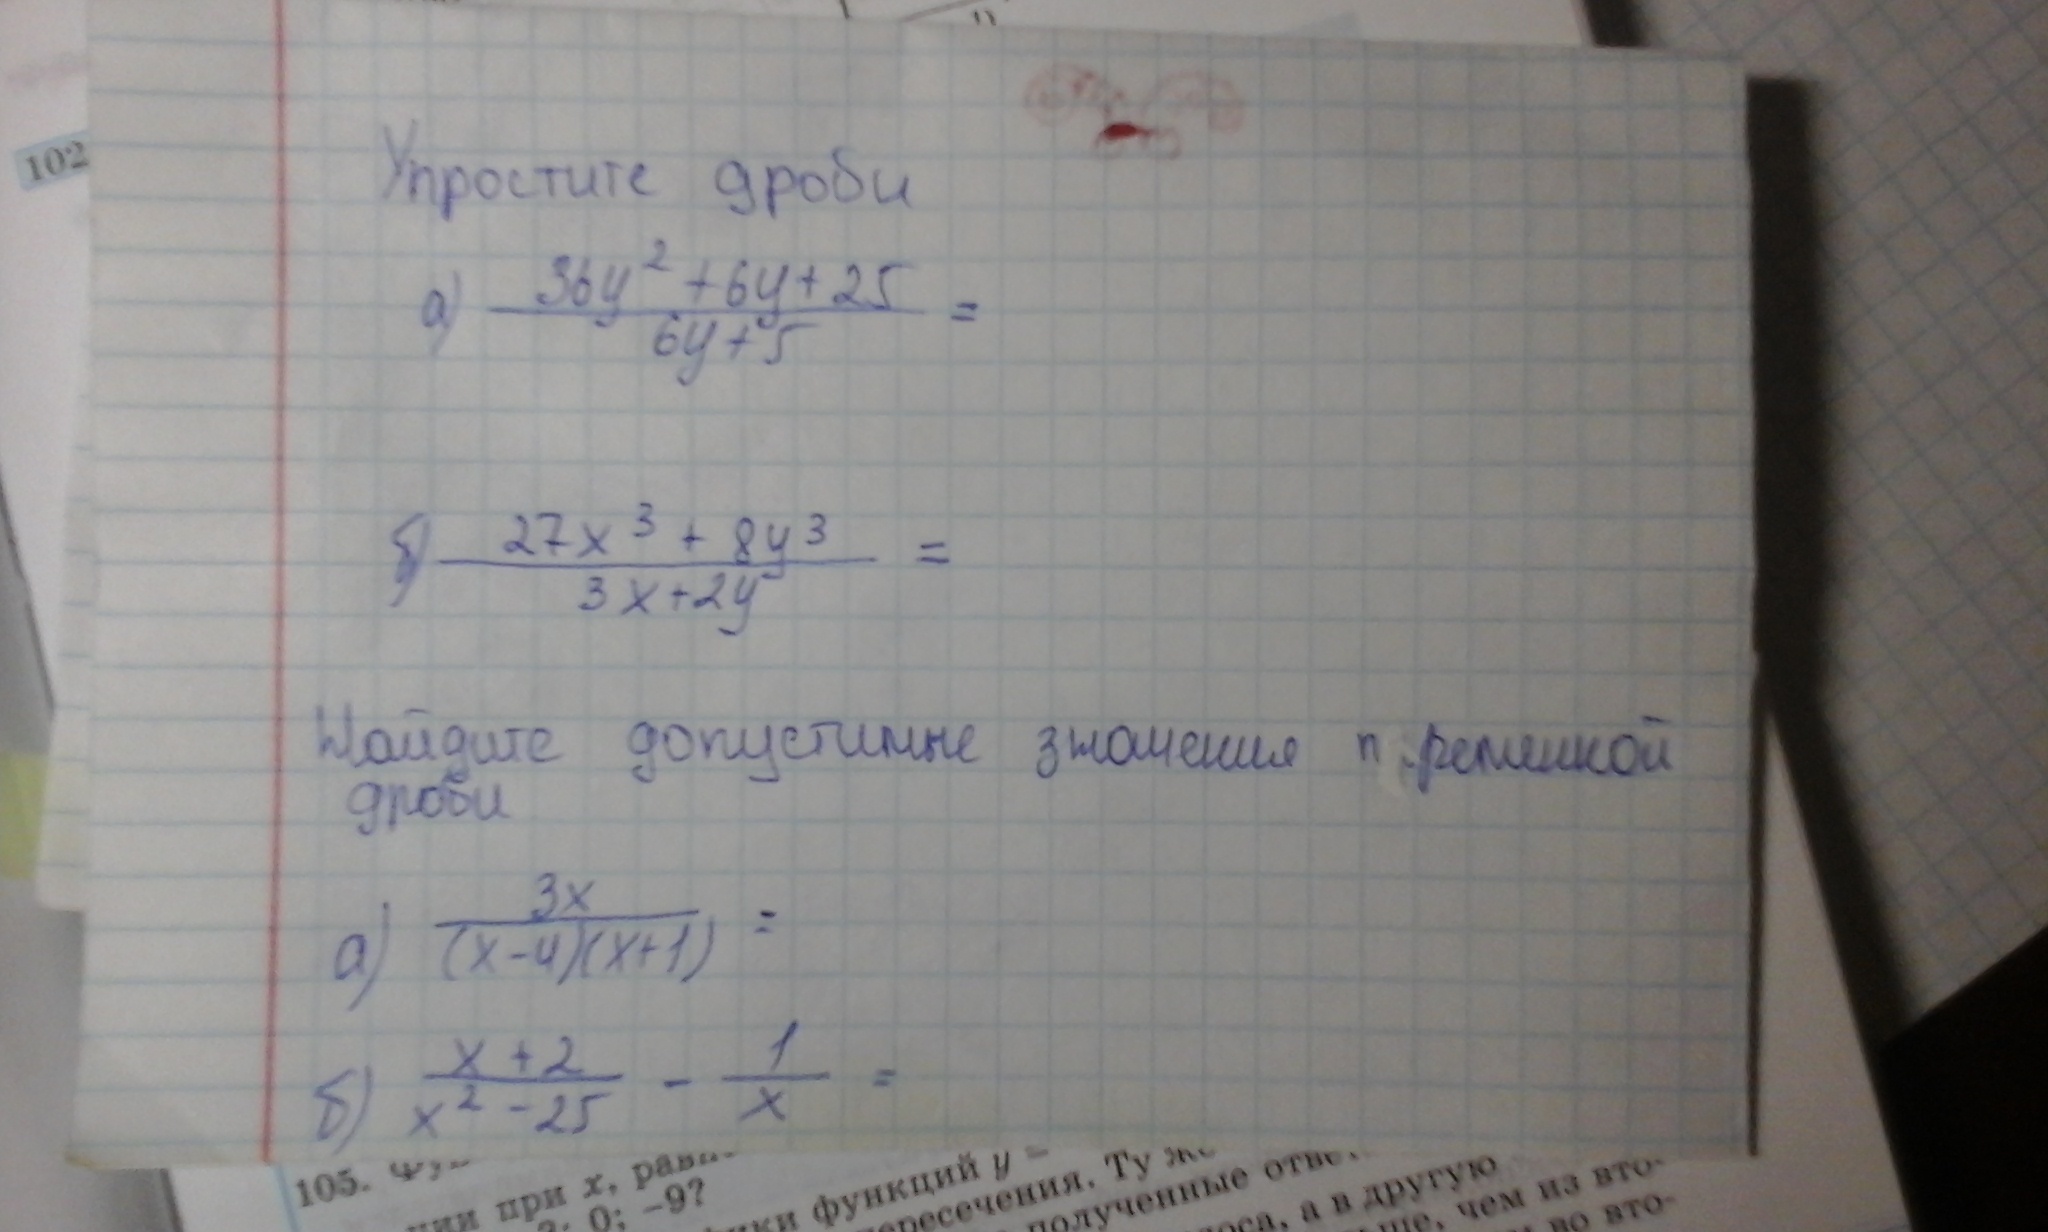 102
Упростите дроби
а) (36y² + 6y + 25) / (6y + 5) =
б) (27x³ + 8y³) / (3x + 2y) =
Найдите допустимые значения переменной
дроби
а) 3x / ((x-4)(x+1)) =
б) (x + 2) / (x² - 25) - 1 / x =
105.
ции при x,
0; -9?
функций y =
пересечения. Ту же
полученные
а в другую
чем из вто-
во вто-